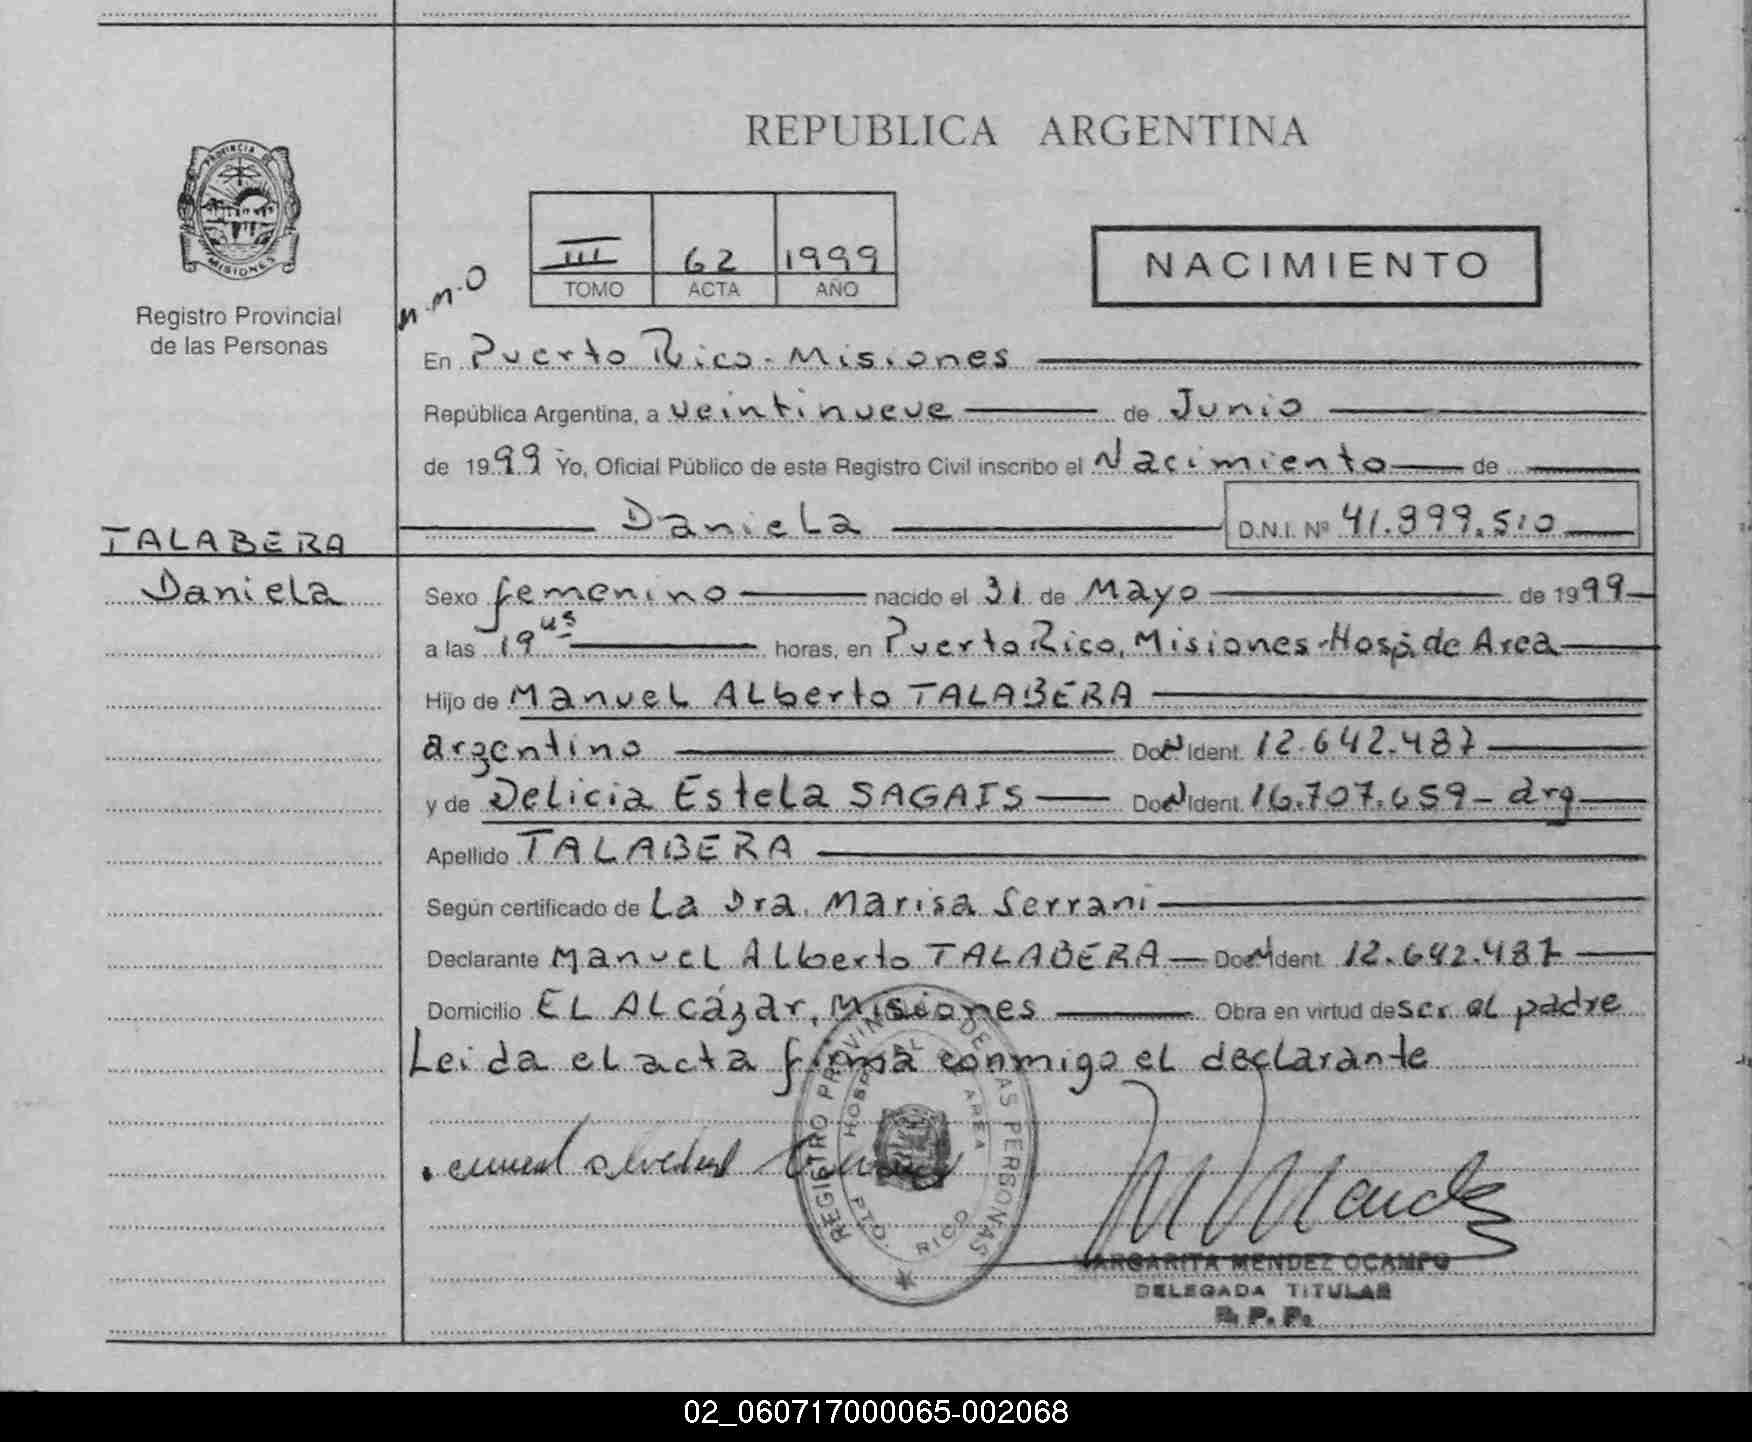 REPUBLICA ARGENTINA
PROVINCIA DE
MISIONES
Registro Provincial
de las Personas
III 62 1999
TOMO ACTA AÑO
NACIMIENTO
M.M.O
En Puerto Rico - Misiones
República Argentina, a veintinueve de Junio
de 1999 Yo, Oficial Público de este Registro Civil inscribo el Nacimiento de
Daniela D.N.I. Nº 41.999.510
TALABERA
Daniela
Sexo femenino nacido el 31 de Mayo de 1999
a las 19 45 horas, en Puerto Rico, Misiones - Hosp. de Area
Hijo de Manuel Alberto TALABERA
argentino Doc N Ident. 12.642.487
y de Delicia Estela SAGAIS Doc N Ident. 16.707.659 - arg
Apellido TALABERA
Según certificado de La Dra. Marisa Serrani
Declarante Manuel Alberto TALABERA Doc N Ident. 12.642.487
Domicilio EL ALcázar, Misiones Obra en virtud de ser el padre
Leida el acta firma conmigo el declarante
REGISTRO PROVINCIAL DE LAS PERSONAS
HOSPITAL DE AREA
PTO. RICO
MARGARITA MENDEZ OCAMPO
DELEGADA TITULAR
R. P. P.
02_060717000065-002068